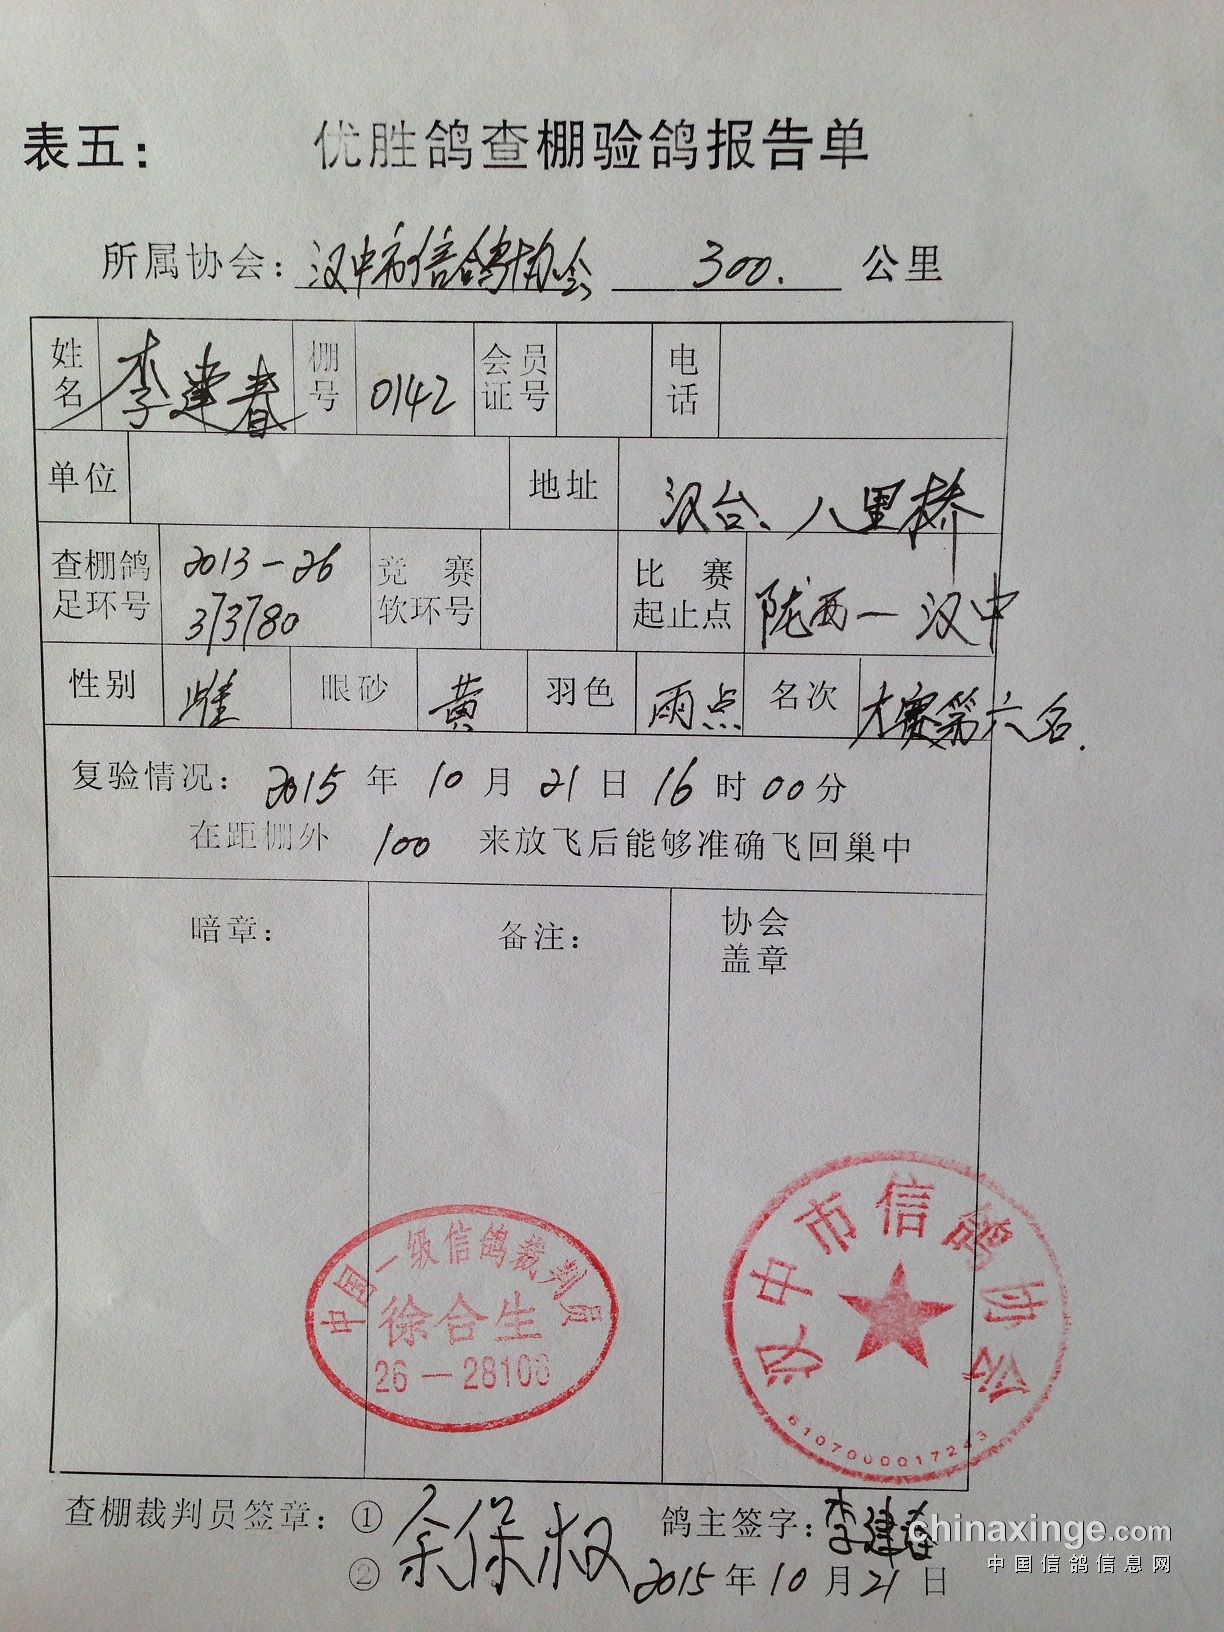 表五： 优胜鸽查棚验鸽报告单
所属协会：汉中市信鸽协会 300. 公里
姓名 李建春 棚号 0142 会员证号 电话
单位 地址 汉台、八里桥
查棚鸽足环号 2013-26 373780 竞赛软环号 比赛起止点 陇西-汉中
性别 雌 眼砂 黄 羽色 雨点 名次 大赛第六名.
复验情况：2015年10月21日16时00分
在距棚外 100 来放飞后能够准确飞回巢中
暗章： 备注： 协会盖章
中国一级信鸽裁判员
徐合生
26-28106
汉中市信鸽协会
6107000017243
查棚裁判员签章：① 余保权 鸽主签字：李建春
② 2015年10月21日
chinaxinge.com
中国信鸽信息网